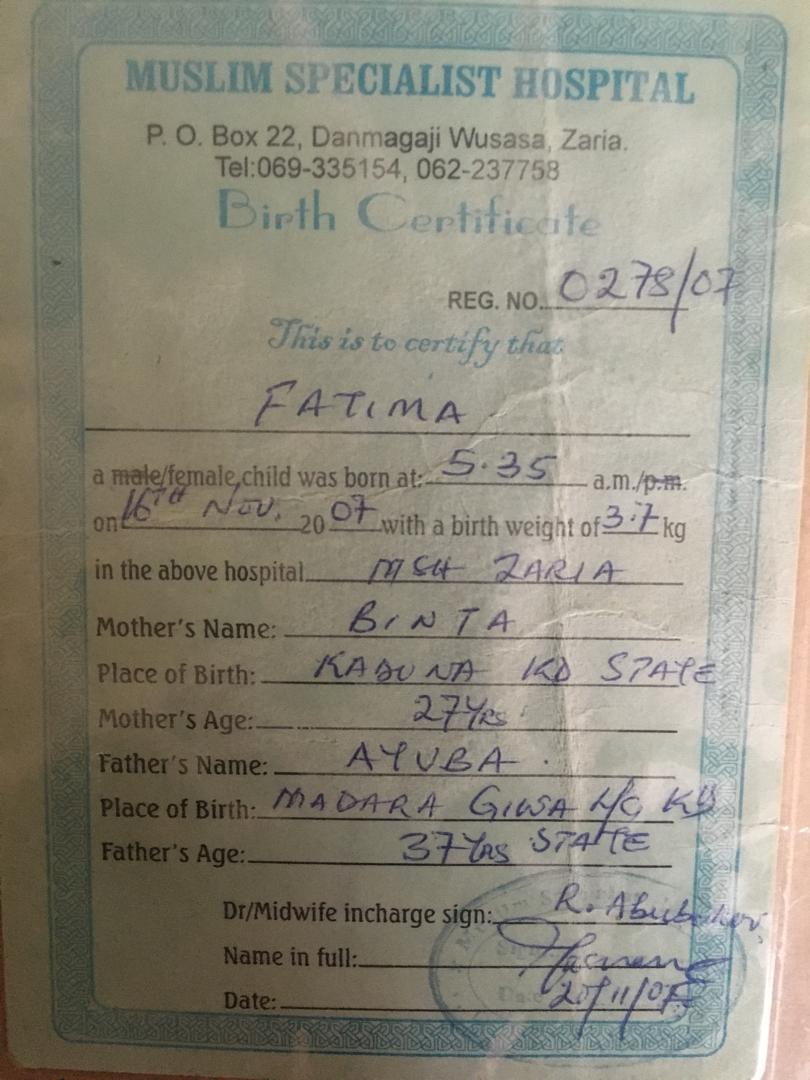 MUSLIM SPECIALIST HOSPITAL
P. O. Box 22, Danmagaji Wusasa, Zaria.
Tel:069-335154, 062-237758
Birth Certificate
REG. NO. 0278/07
This is to certify that
FATIMA
a male/female child was born at: 5.35 a.m./p.m.
on 16TH NOV. 20 07 with a birth weight of 3.7 kg
in the above hospital MSH ZARIA
Mother's Name: BINTA
Place of Birth: KADUNA KD STATE
Mother's Age: 27YRS
Father's Name: AYUBA
Place of Birth: MADARA GIWA L/G KD
Father's Age: 37YRS STATE
Dr/Midwife incharge sign: R. Abubakar
Name in full:
Date: 20/11/07